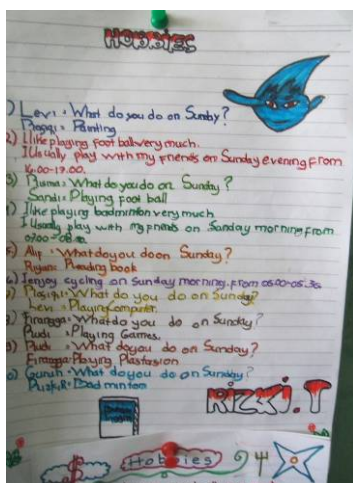 HOBBIES
) Levi : What do you do on Sunday?
Painting
2) I like playing foot ball very much.
I Usually play with my friends on Sunday evening from
16.00-17.00.
3) Risma : What do you do on Sunday?
Sandi : Playing foot ball
) I like playing badminton very much
I Usually play with my friends on Sunday morning from
07.00-08.
) Alip : What do you do on Sunday?
Riyan : Reading book
) I enjoy cycling on Sunday morning, from 05.00-05.30
) What do you do on Sunday?
Levi : Playing Computer.
) Firangga : What do you do on Sunday?
Rudi : Playing Games.
) Rudi : What do you do on Sunday?
Firangga : Playing Plastasion.
) Guruh : What do you do on Sunday?
Badminton
RIZKI.T
Hobbies